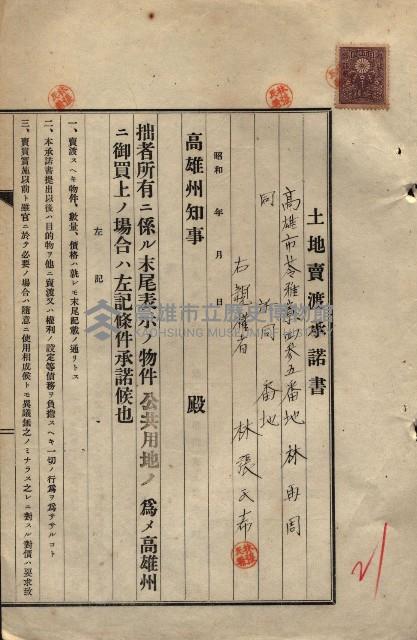 土地賣渡承諾書
高雄市苓雅寮四参五番地 林再同
同 番地
右親權者 林張氏希
昭和 年 月 日
高雄州知事 殿
拙者所有ニ係ル末尾表示ノ物件公共用地ノ為メ高雄州
ニ御買上ノ場合ハ左記條件承諾候也
左記
一、賣渡スヘキ物件、數量、價格ハ就レモ末尾記載ノ通リトス
二、本承諾書提出以後ハ目的物ヲ他ニ賣渡又ハ權利ノ設定等債務ヲ負擔スヘキ一切ノ行為ヲ為サザルコト
三、賣買實施以前ト雖官ニ於テ必要ノ場合ハ隨意ニ使用相成候トモ異議無之ノミナラス之レニ對スル對價ハ要求致
高雄市立歷史博物館
KAOHSIUNG MUSEUM OF HISTORY
21